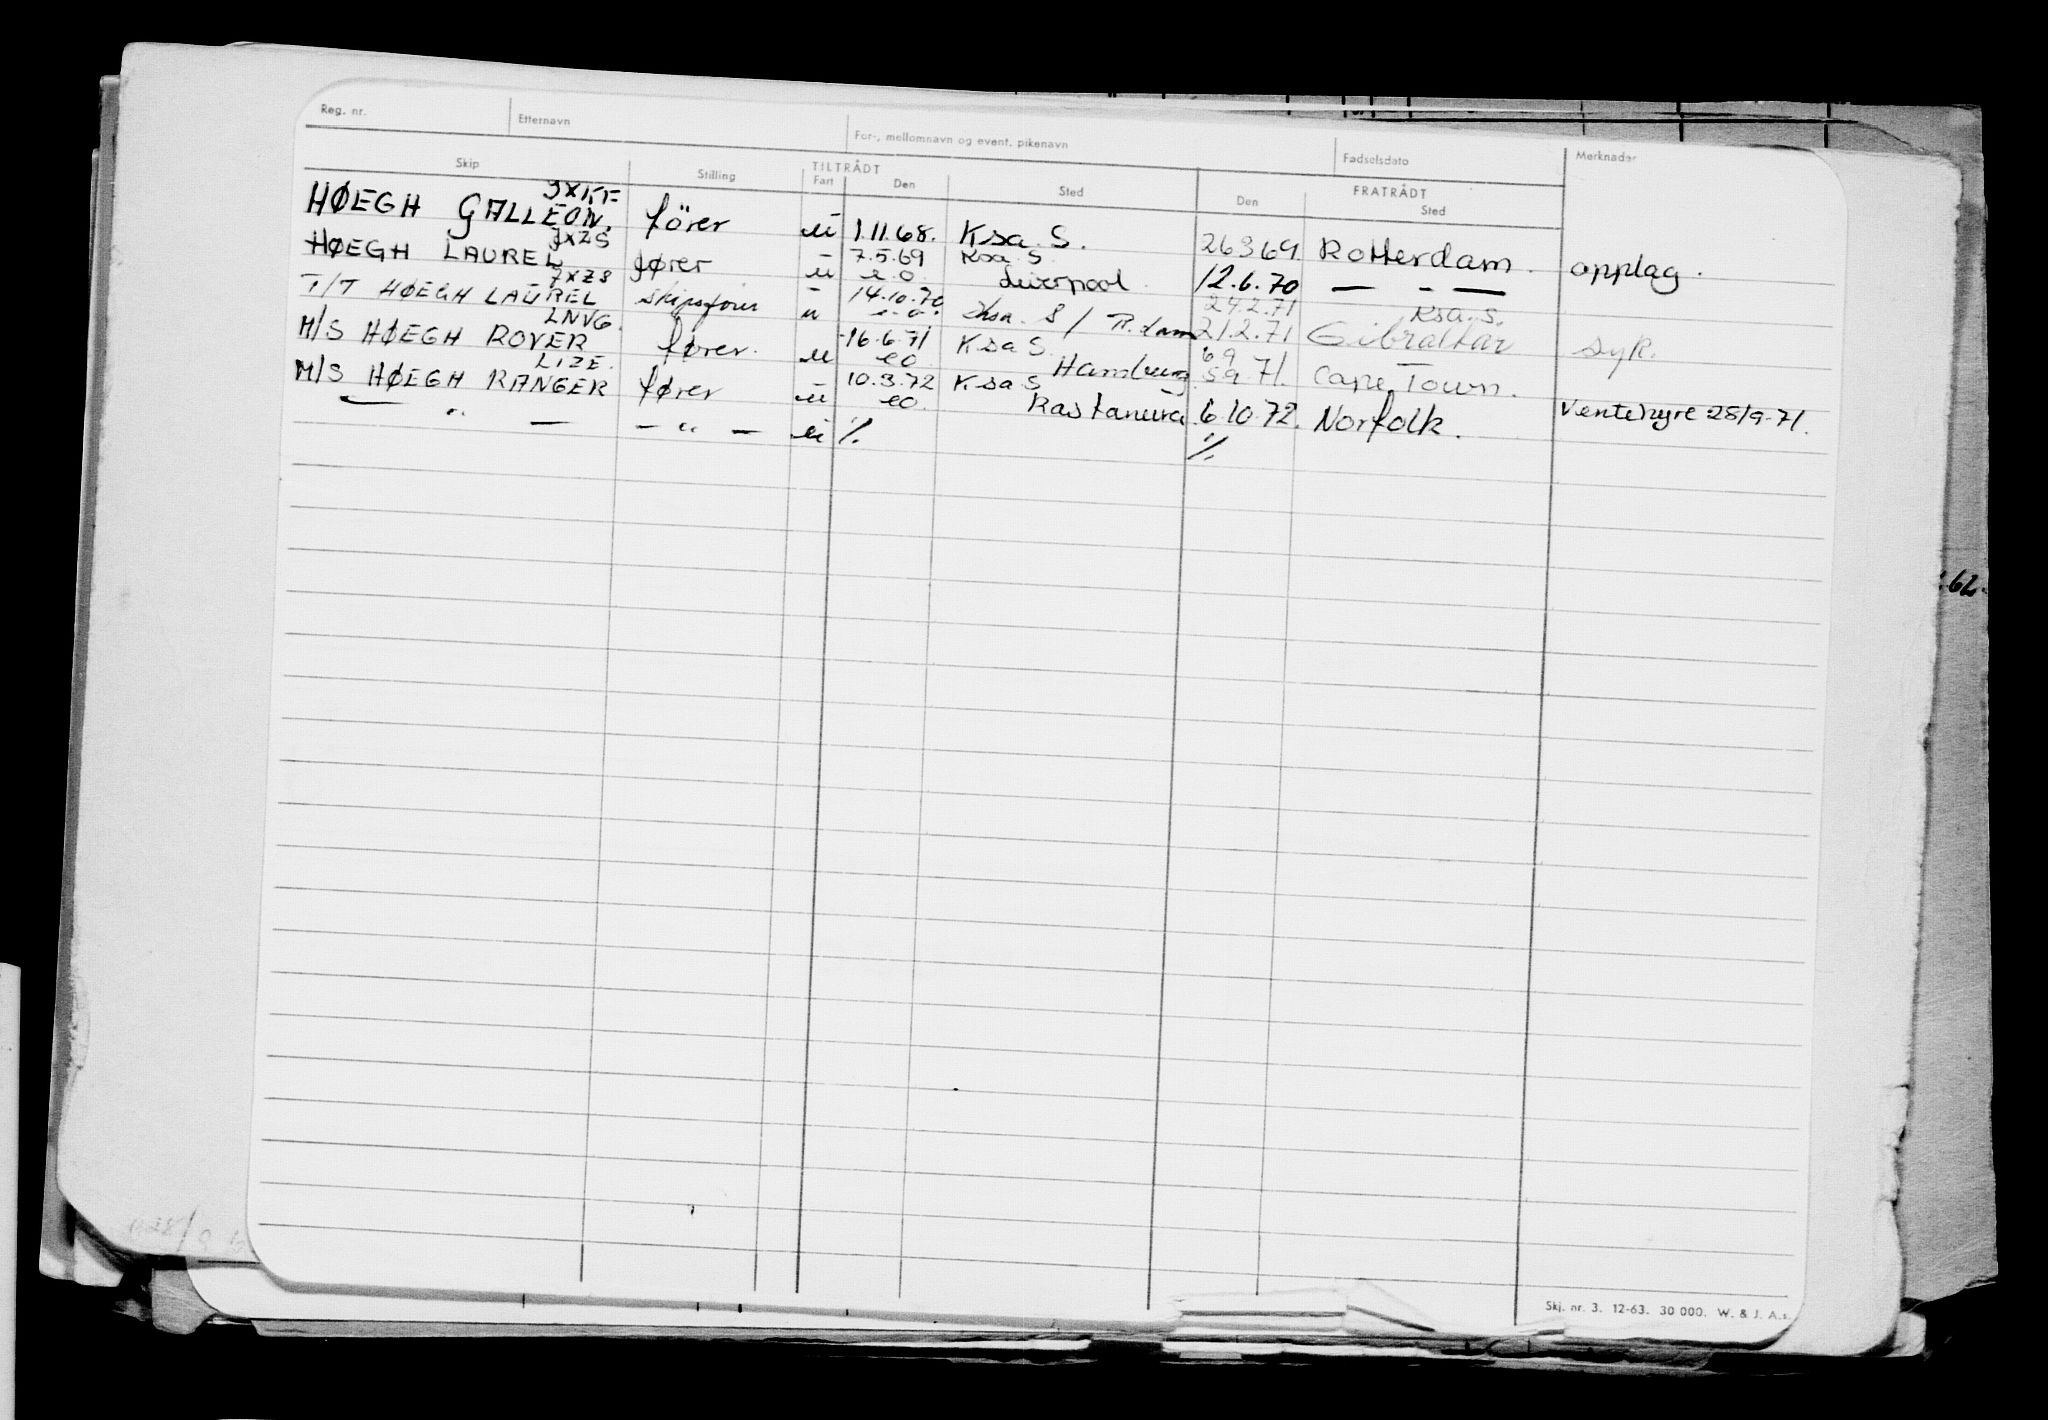 Reg. nr. Etternavn For-, mellomnavn og event. pikenavn Fødselsdato Merknader
Skip Stilling TILTRÅDT FRATRÅDT
Fart Den Sted Den Sted
JXKF
HØEGH GALLEON. förer u 1.11.68. Ksa. S. 26369. Rotterdam. opplag.
JXZS
HØEGH LAUREL fører u 7.5.69 Ksa. S.
e.o. Liverpool. 12.6.70 — " —
JXZS
T/T HØEGH LAUREL skipsfører u 14.10.70 Ksa. S / R.dam 24.2.71 Ksa. S.
e.o. 21.2.71 Gibraltar syk.
LNVG.
M/S HØEGH ROVER fører. u 16.6.71 Ksa S. 6 9
eo Hamburg 5 9.71. Cape Town.
LIZE.
M/S HØEGH RANGER fører u 10.3.72 Ksa S
eo. Rastanura 6.10.72. Norfolk. Ventehyre 28/9-71.
— " — — " — u %. %.
62.
Skj. nr. 3. 12-63. 30 000. W. & J. A.s.